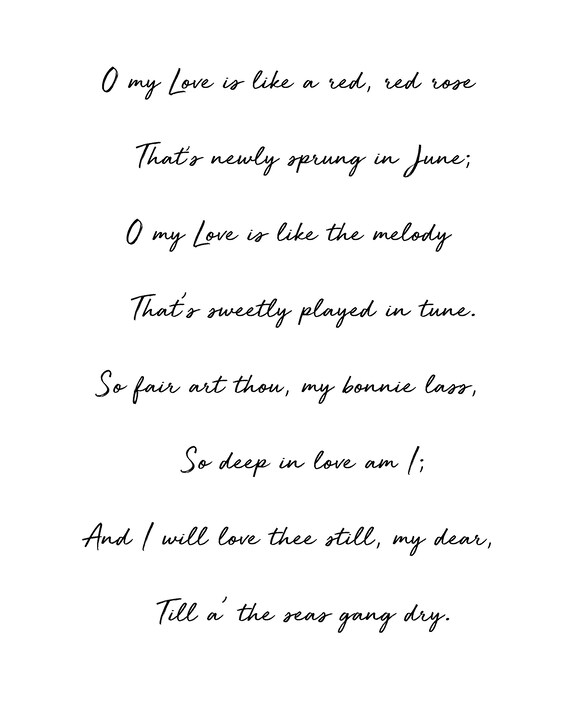 O my Love is like a red, red rose
That's newly sprung in June;
O my Love is like the melody
That's sweetly played in tune.
So fair art thou, my bonnie lass,
So deep in love am I;
And I will love thee still, my dear,
Till a' the seas gang dry.